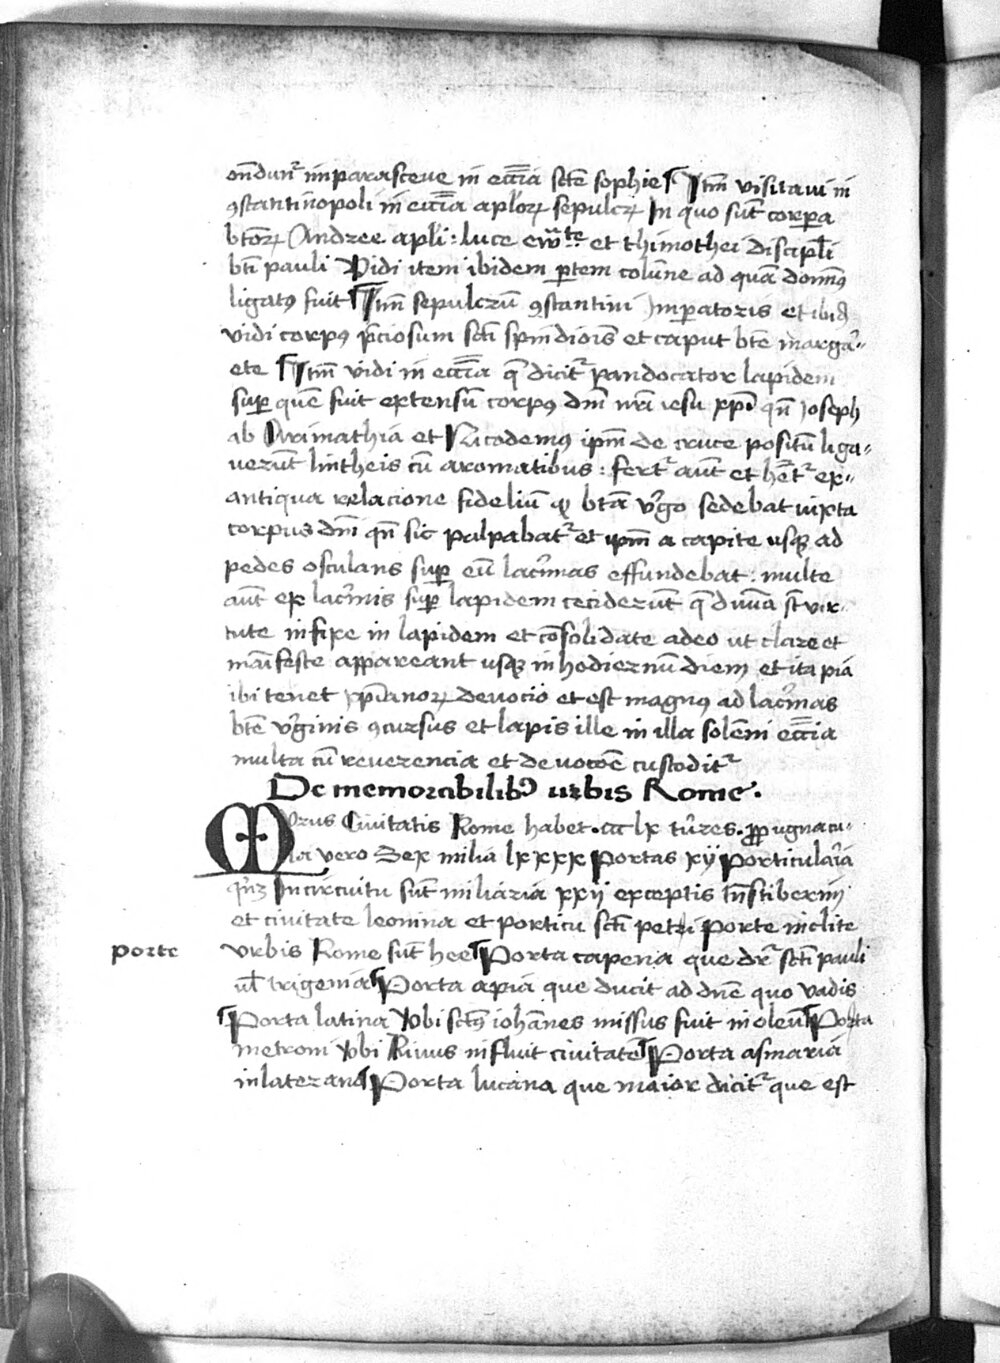 ondunt᷑ in parasceue in ecc̄ia sctē sophie ¶ Itm̄ visitaui in
ꝯstantinopoli in ecc̄ia aplōꝝ sepulcꝝ In quo sūt corꝑa
btōꝝ Andree apl̄i : luce ewa᷑te et thimothei discipl̄i
bt̄i pauli Vidi item ibidem ꝑtem colūne ad quā domin᷒
ligat᷒ fuit ¶ Itm̄ sepulcrū ꝯstantini Imperatoris et ibid̄
vidi corp᷒ p̄ciosum sct̄i spiridionis et caput btē marga᷑-
ete ¶ Itm̄ vidi in ecc̄ia q̄ dicit᷑ pandocator lapidem
suꝑ quē fuit extensū corp᷒ dn̄i nr̄i iesu xp̄i qn̄ Joseph
ab Arimathia et Nicodem᷒ ipm̄ de cruce positū liga-
uerūt lintheis cū aromatibus : fert᷑ aūt et hēt᷑ ex-
antiqua relacione fideliū ꝙ btā v᷑go sedebat iuxta
corpus dn̄i qn̄ sic palpabat᷑ et ipm̄ a capite usqꝫ ad
pedes osculans suꝑ eū lac᷑mas effundebat : multe
aūt ex lac᷑mis suꝑ lapidem ceciderūt q̄ diuīa st̄ vir-
tute infixe in lapidem et cōsolidate adeo ut clare et
maīfeste appareant usqꝫ in hodiernū diem et ita pia
ibi tenet xp̄ianoꝝ deuocio et est magn᷒ ad lac᷑mas
btē v᷑ginis ꝯcursus et lapis ille in illa solēni ecc̄ia
multa cū reuerencia et deuocōe custodit᷑
De memorabilib᷒ urbis Rome.
Murus Ciuitatis Rome habet .ccc lx tūres. ꝓpugnacu-
la vero Sex milia lxxxx portas xij porticula᷑ia
In circuitu sūt miliaria xxij exceptis tn̄stiberim
et ciuitate leonina et porticu sct̄i petri porte inclite
porte
vrbis Rome sūt hee ¶ Porta capena que dr᷑ sct̄i pauli
ul̄ trigemia ¶ Porta apia que ducit ad dn̄e quo vadis
¶ Porta latina Vbi sct᷒ iohānes missus fuit in oleū ¶ Porta
metroni Vbi Riuus influit ciuitatē ¶ Porta asinaria
in laterano ¶ Porta lucana que maior dicit᷑ que est